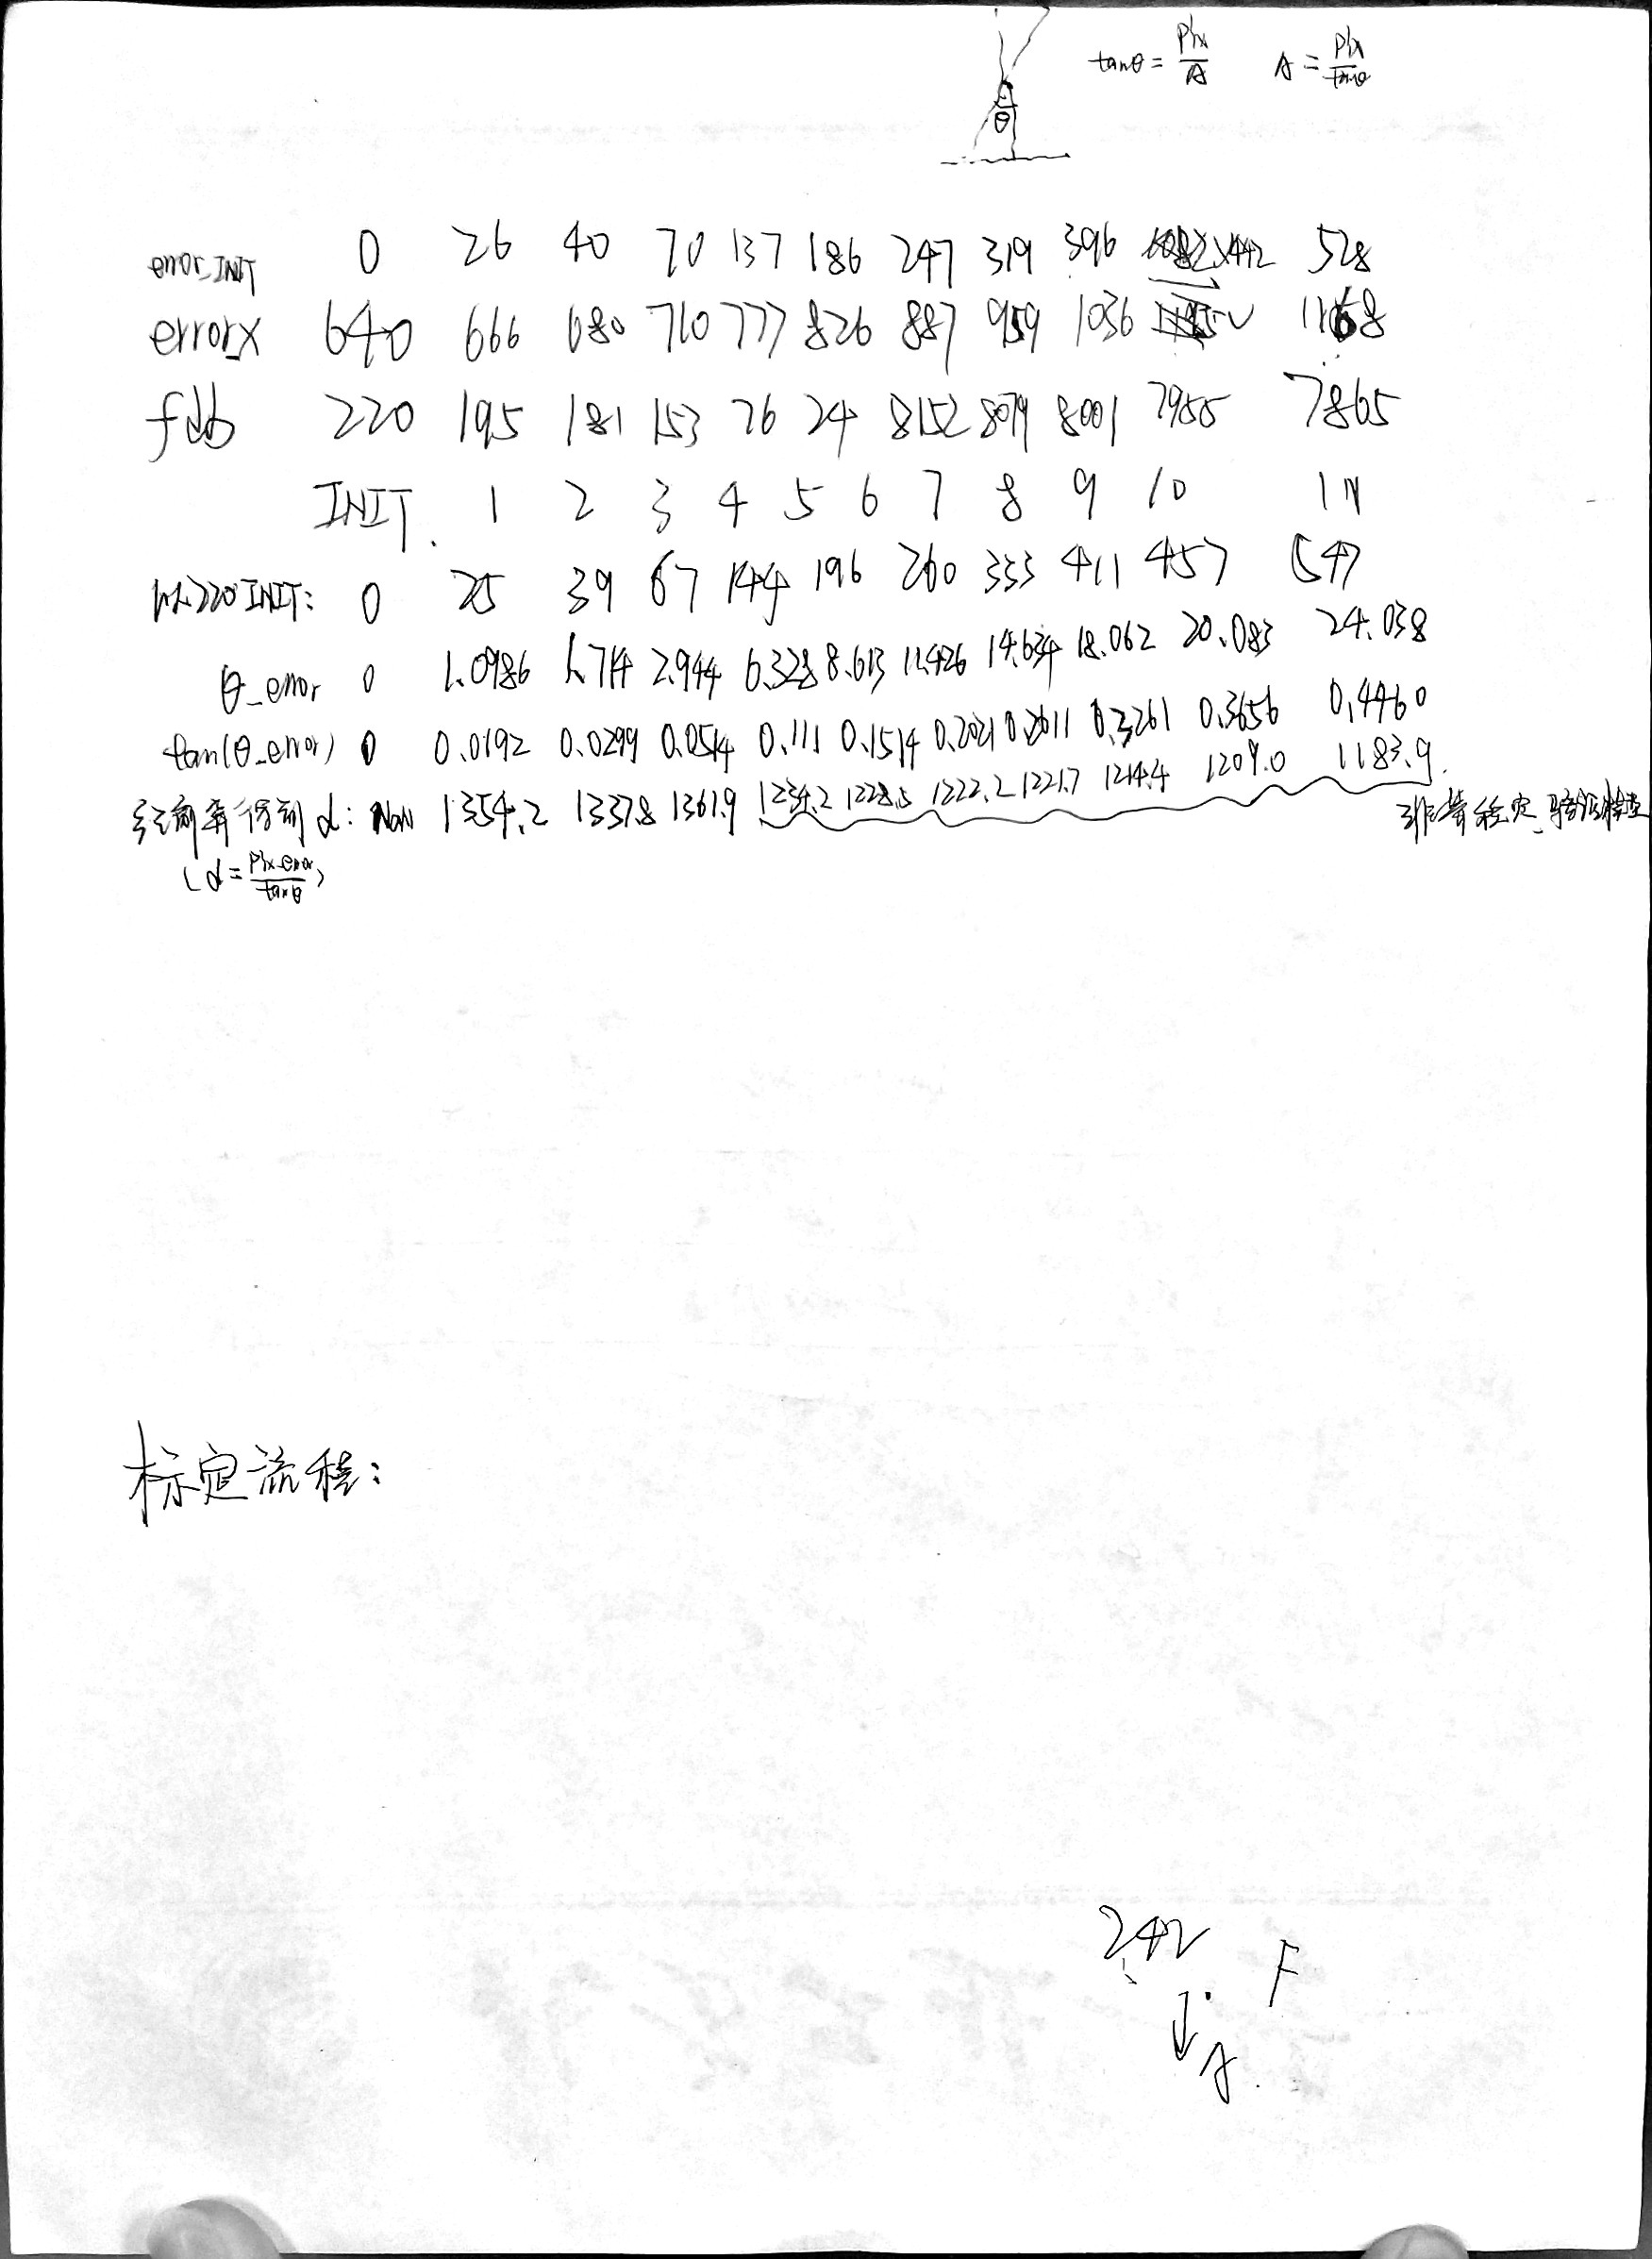 θ
tanθ = Pix/A A = Pix/tanθ
error_INIT 0 26 40 70 137 186 247 319 396 442 528
error_x 640 666 680 710 777 826 887 959 1036 1168
fdb 220 195 181 153 76 24 8152 8079 8001 7955 7865
INIT. 1 2 3 4 5 6 7 8 9 10 11
以220 INIT: 0 25 39 67 144 196 260 333 411 457 547
θ_error 0 1.0986 1.714 2.944 6.328 8.613 11.426 14.634 18.062 20.083 24.038
tan(θ_error) 0 0.0192 0.0299 0.0514 0.111 0.1514 0.2021 0.2611 0.3261 0.3656 0.4460
d: NaN 1354.2 1337.8 1361.9 1234.2 1228.5 1222.2 1221.7 1214.4 1209.0 1183.9.
非常稳定、验证模型
( d = Pix_error/tanθ )
标定流程:
242
F
A